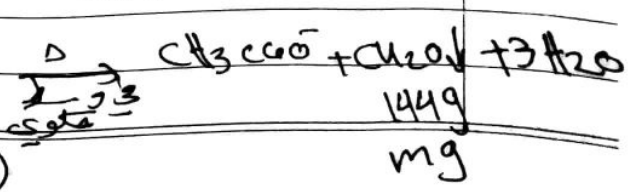 Δ CH3COO⁻ + Cu2O↓ + 3H2O
144g
mg